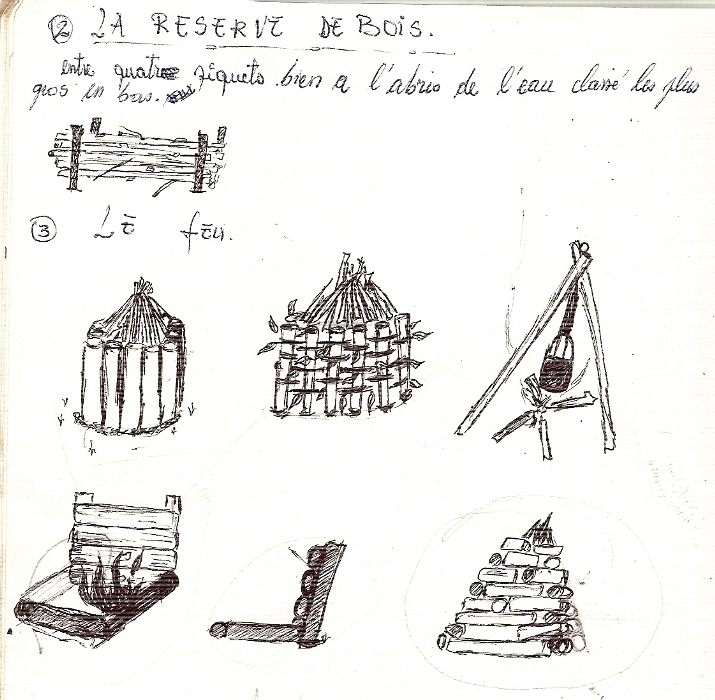 2 LA RESERVE DE BOIS.
entre quatre piquets bien a l'abris de l'eau classé les plus
gros en bas.
3 LE fEU.